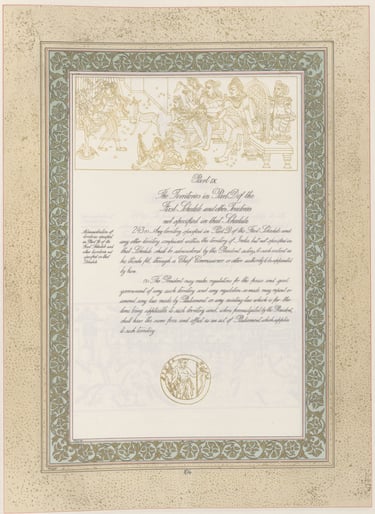 Part IX
The Territories in Part D of the
First Schedule and other Territories
not specified in that Schedule
Administration of
territories specified
in Part D of the
First Schedule and
other territories not
specified in that
Schedule.
243. (1) Any territory specified in Part D of the First Schedule and
any other territory comprised within the territory of India but not specified in
that Schedule shall be administered by the President acting, to such extent as
he thinks fit, through a Chief Commissioner or other authority to be appointed
by him.
(2) The President may make regulations for the peace and good
government of any such territory and any regulation so made may repeal or
amend any law made by Parliament or any existing law which is for the
time being applicable to such territory and, when promulgated by the President,
shall have the same force and effect as an Act of Parliament which applies
to such territory.
104